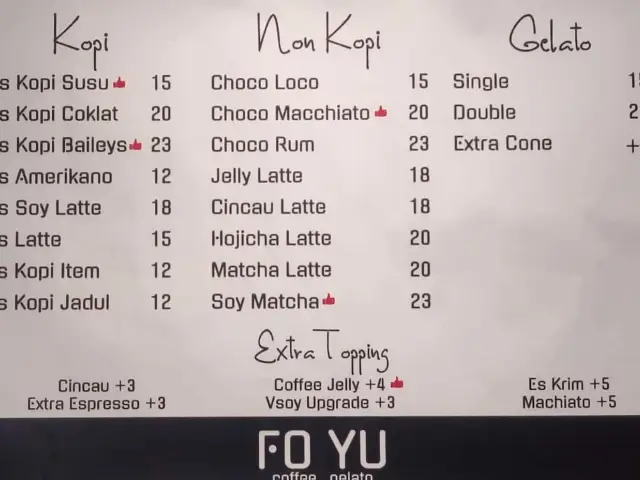 Kopi
s Kopi Susu 15
s Kopi Coklat 20
s Kopi Baileys 23
s Amerikano 12
s Soy Latte 18
s Latte 15
s Kopi Item 12
s Kopi Jadul 12
Non Kopi
Choco Loco 15
Choco Macchiato 20
Choco Rum 23
Jelly Latte 18
Cincau Latte 18
Hojicha Latte 20
Matcha Latte 20
Soy Matcha 23
Gelato
Single
Double
Extra Cone
Extra Topping
Cincau +3
Extra Espresso +3
Coffee Jelly +4
Vsoy Upgrade +3
Es Krim +5
Machiato +5
FO YU
coffee gelato